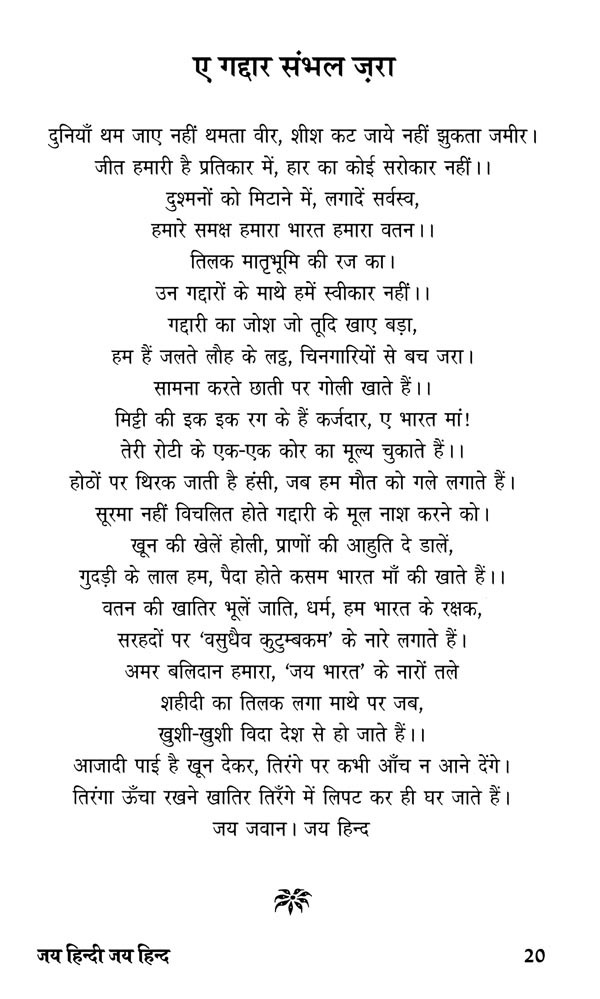 ए गद्दार संभल ज़रा
दुनियाँ थम जाए नहीं थमता वीर, शीश कट जाये नहीं झुकता जमीर।
जीत हमारी है प्रतिकार में, हार का कोई सरोकार नहीं।।
दुश्मनों को मिटाने में, लगादें सर्वस्व,
हमारे समक्ष हमारा भारत हमारा वतन।।
तिलक मातृभूमि की रज का।
उन गद्दारों के माथे हमें स्वीकार नहीं।।
गद्दारी का जोश जो तूदि खाए बड़ा,
हम हैं जलते लौह के लट्ठ, चिनगारियों से बच जरा।
सामना करते छाती पर गोली खाते हैं।।
मिट्टी की इक इक रग के हैं कर्जदार, ए भारत मां!
तेरी रोटी के एक-एक कोर का मूल्य चुकाते हैं।।
होठों पर थिरक जाती है हंसी, जब हम मौत को गले लगाते हैं।
सूरमा नहीं विचलित होते गद्दारी के मूल नाश करने को।
खून की खेलें होली, प्राणों की आहुति दे डालें,
गुदड़ी के लाल हम, पैदा होते कसम भारत माँ की खाते हैं।।
वतन की खातिर भूलें जाति, धर्म, हम भारत के रक्षक,
सरहदों पर ‘वसुधैव कुटुम्बकम’ के नारे लगाते हैं।
अमर बलिदान हमारा, ‘जय भारत’ के नारों तले
शहीदी का तिलक लगा माथे पर जब,
खुशी-खुशी विदा देश से हो जाते हैं।।
आजादी पाई है खून देकर, तिरंगे पर कभी आँच न आने देंगे।
तिरंगा ऊँचा रखने खातिर तिरँगे में लिपट कर ही घर जाते हैं।
जय जवान। जय हिन्द
जय हिन्दी जय हिन्द 20